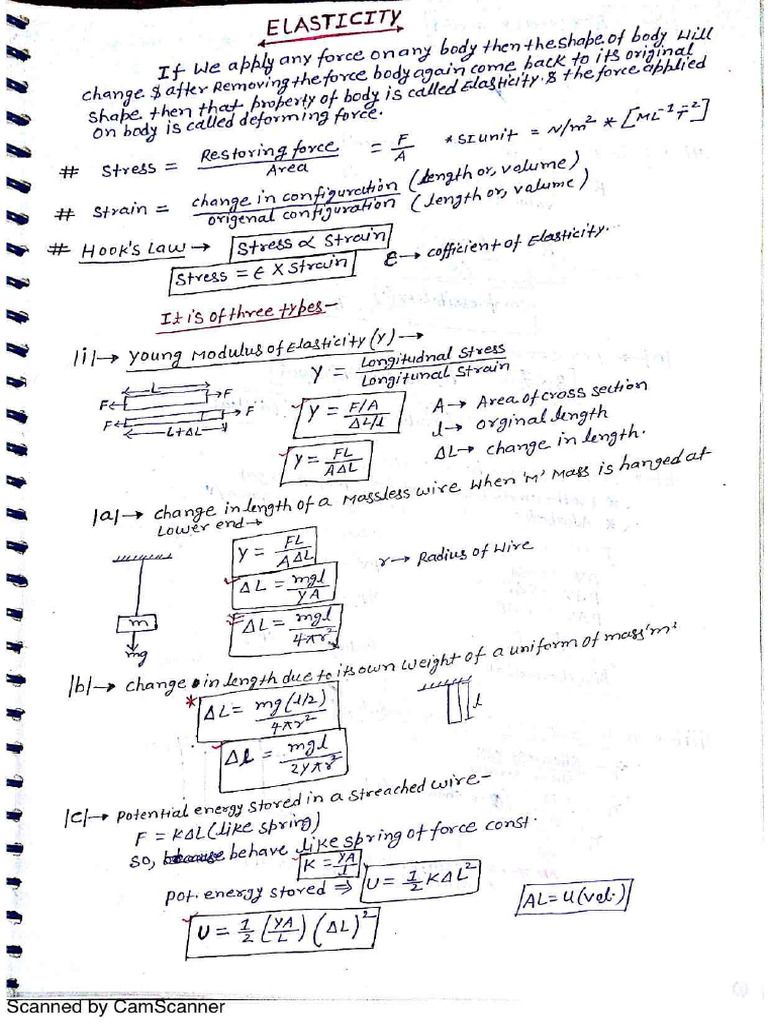 ELASTICITY
If We apply any force on any body then the shape of body will
change & after Removing the force body again come back to its original
shape then that property of body is called Elasticity. & the force applied
on body is called deforming force.
# Stress = Restoring force / Area = F/A * SI unit = N/m² * [ML⁻¹T⁻²]
# Strain = change in configuration (length or, volume) / origenal configuration (length or, volume)
# Hook's Law → Stress ∝ Strain
Stress = ϵ × Strain ϵ → cofficient of Elasticity.
It is of three types -
|i|→ Young Modulus of Elasticity (Y) →
Y = Longitudnal Stress / Longitunal Strain
L
F F
F F
L+ΔL
Y = F/A / ΔL/l
A → Area of cross section
l → orginal length
ΔL → change in length.
Y = FL / AΔL
|a|→ change in length of a Massless wire when 'M' Mass is hanged at
Lower end →
Y = FL / AΔL
r → Radius of Wire
ΔL = mgl / YA
ΔL = mgl / 4πr²
m
mg
|b|→ change in length due to its own weight of a uniform of mass 'm'
* ΔL = mg(l/2) / 4πr²
l
Δl = mgl / 2Yπr²
|c|→ Potential energy stored in a streached wire -
F = KΔL (like spring)
so, because behave like spring of force const.
K = YA / l
pot. energy stored ⇒ U = 1/2 KΔL²
AL = U (vol.)
U = 1/2 (YA/L) (ΔL)²
Scanned by CamScanner